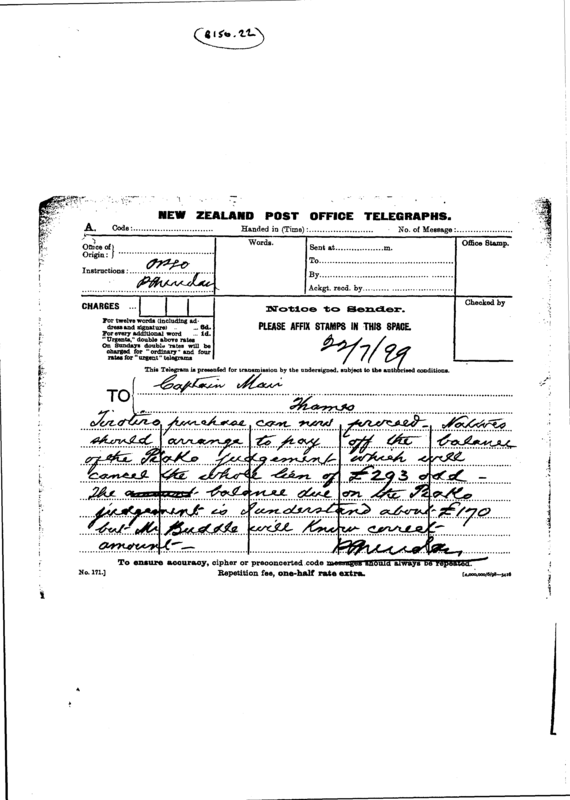 (B150.22)
NEW ZEALAND POST OFFICE TELEGRAPHS.
A. Code: Handed in (Time): No. of Message:
Office of Origin:
Instructions: P Sheridan
Words.
Sent at m.
To
By
Ackgt. recd. by
Office Stamp.
CHARGES ...
For twelve words (including address and signature) ... 6d.
For every additional word ... 1d.
"Urgents," double above rates
On Sundays double rates will be
charged for "ordinary" and four
rates for "urgent" telegrams
Notice to Sender.
PLEASE AFFIX STAMPS IN THIS SPACE.
22/7/99
Checked by
This Telegram is presented for transmission by the undersigned, subject to the authorised conditions.
TO Captain Mair
Thames
purchase can now proceed Natives
should arrange to pay off the balance
of the Piako judgement which will
cancel the whole lien of £293 odd -
The amount balance due on the Piako
judgement is I understand about £170
but Mr Buddle will know correct
amount -
P Sheridan
To ensure accuracy, cipher or preconcerted code messages should always be repeated.
No. 171.] Repetition fee, one-half rate extra.